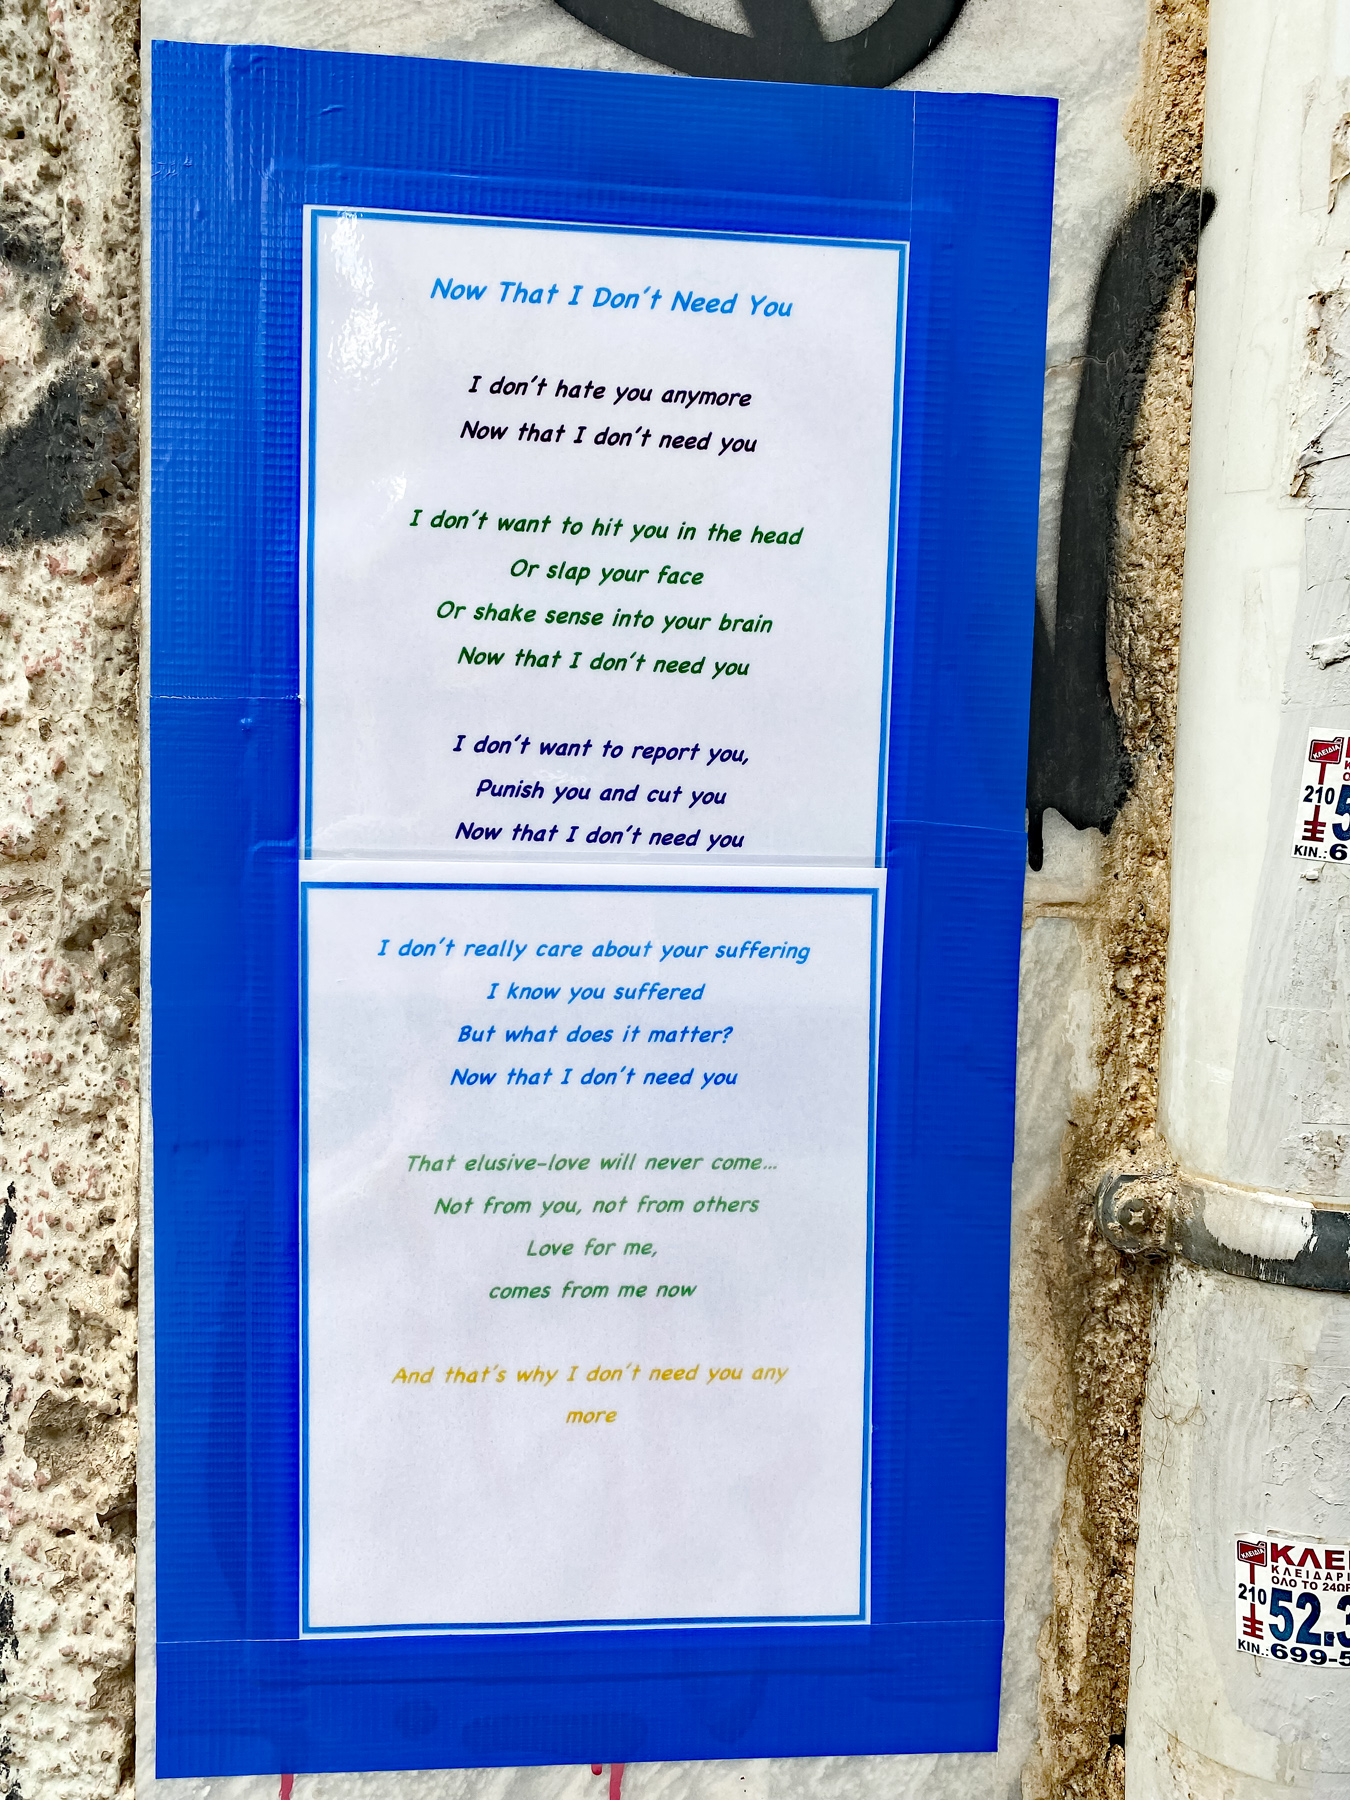 Now That I Don't Need You
I don't hate you anymore
Now that I don't need you
I don't want to hit you in the head
Or slap your face
Or shake sense into your brain
Now that I don't need you
I don't want to report you,
Punish you and cut you
Now that I don't need you
I don't really care about your suffering
I know you suffered
But what does it matter?
Now that I don't need you
That elusive-love will never come...
Not from you, not from others
Love for me,
comes from me now
And that's why I don't need you any
more
ΚΛΕΙΔΙΑ
210
ΚΙΝ.:6
ΚΛΕΙΔΙΑ
ΚΛΕΙ
ΚΛΕΙΔΑΡΙ
ΟΛΟ ΤΟ 24ΩΡ
210
52.3
ΚΙΝ.:699-5